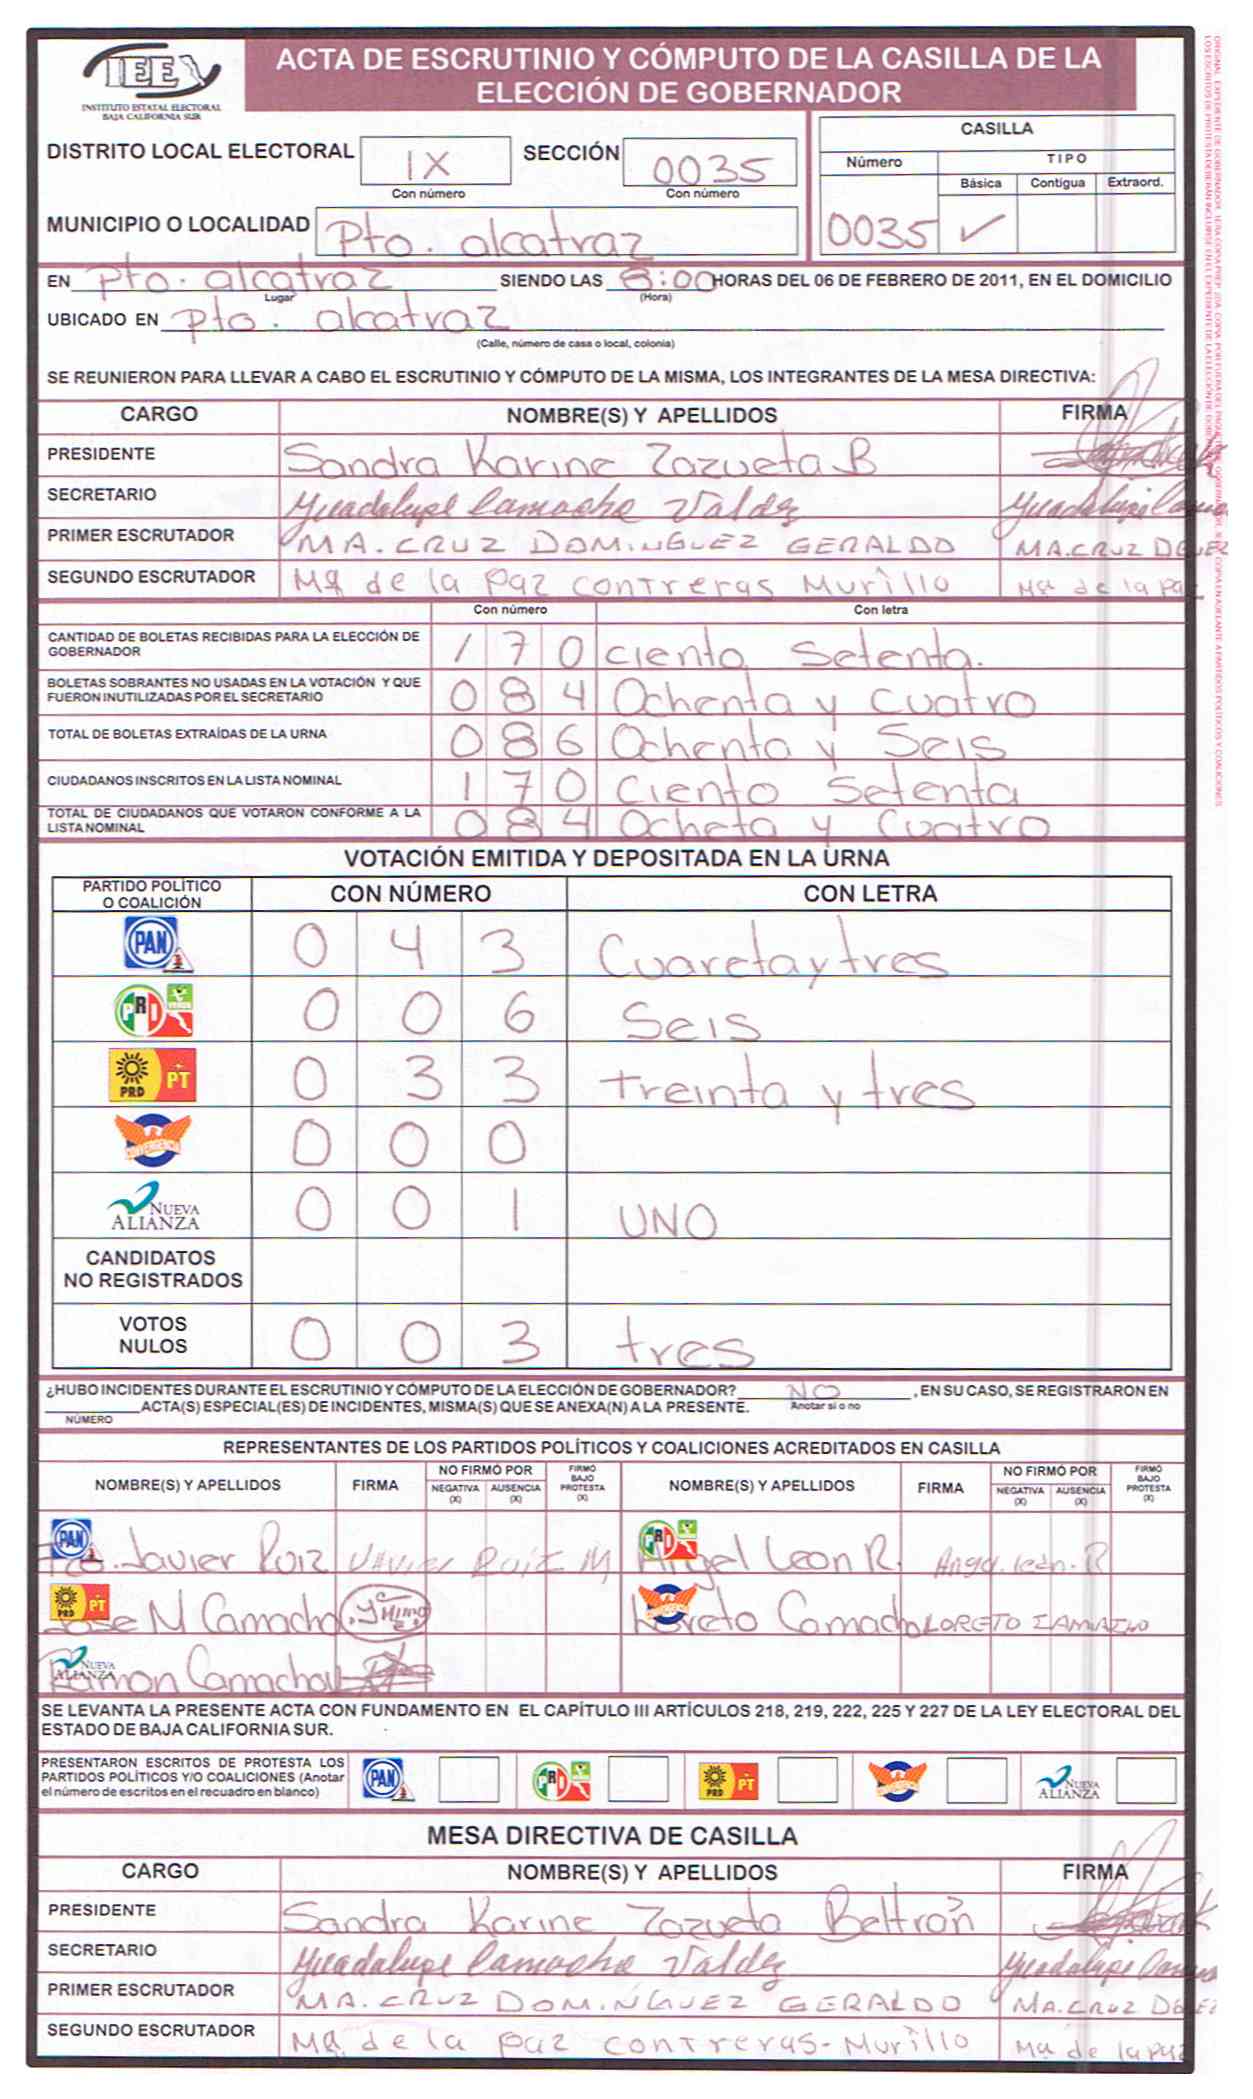 IEEBCS
INSTITUTO ESTATAL ELECTORAL
BAJA CALIFORNIA SUR
ACTA DE ESCRUTINIO Y CÓMPUTO DE LA CASILLA DE LA
ELECCIÓN DE GOBERNADOR
DISTRITO LOCAL ELECTORAL IX SECCIÓN 0035
Con número Con número
MUNICIPIO O LOCALIDAD Pto. alcatraz
CASILLA
Número TIPO
Básica Contigua Extraord.
0035 ✓
EN Pto. alcatraz SIENDO LAS 8:00 HORAS DEL 06 DE FEBRERO DE 2011, EN EL DOMICILIO
Lugar (Hora)
UBICADO EN pto. alcatraz
(Calle, número de casa o local, colonia)
SE REUNIERON PARA LLEVAR A CABO EL ESCRUTINIO Y CÓMPUTO DE LA MISMA, LOS INTEGRANTES DE LA MESA DIRECTIVA:
CARGO NOMBRE(S) Y APELLIDOS FIRMA
PRESIDENTE Sandra Karine Zazueta B
SECRETARIO Guadalupe Camacho Valdez Guadalupe
PRIMER ESCRUTADOR MA. CRUZ DOMINGUEZ GERALDO MA. CRUZ DGUEZ
SEGUNDO ESCRUTADOR Mª de la Paz Contreras Murillo Mª de la Paz
Con número Con letra
CANTIDAD DE BOLETAS RECIBIDAS PARA LA ELECCIÓN DE
GOBERNADOR 170 ciento Setenta.
BOLETAS SOBRANTES NO USADAS EN LA VOTACIÓN Y QUE
FUERON INUTILIZADAS POR EL SECRETARIO 084 Ochenta y Cuatro
TOTAL DE BOLETAS EXTRAÍDAS DE LA URNA 086 Ochenta y Seis
CIUDADANOS INSCRITOS EN LA LISTA NOMINAL 170 Ciento Setenta
TOTAL DE CIUDADANOS QUE VOTARON CONFORME A LA
LISTA NOMINAL 084 Ocheta y Cuatro
VOTACIÓN EMITIDA Y DEPOSITADA EN LA URNA
PARTIDO POLÍTICO
O COALICIÓN CON NÚMERO CON LETRA
PAN 0 4 3 Cuaretaytres
PRD 0 0 6 Seis
PRD PT 0 3 3 treinta y tres
CONVERGENCIA 0 0 0
NUEVA
ALIANZA 0 0 1 UNO
CANDIDATOS
NO REGISTRADOS
VOTOS
NULOS 0 0 3 tres
¿HUBO INCIDENTES DURANTE EL ESCRUTINIO Y CÓMPUTO DE LA ELECCIÓN DE GOBERNADOR? NO, EN SU CASO, SE REGISTRARON EN
ACTA(S) ESPECIAL(ES) DE INCIDENTES, MISMA(S) QUE SE ANEXA(N) A LA PRESENTE. Anotar si o no
NÚMERO
REPRESENTANTES DE LOS PARTIDOS POLÍTICOS Y COALICIONES ACREDITADOS EN CASILLA
NOMBRE(S) Y APELLIDOS FIRMA NO FIRMÓ POR NEGATIVA (X) AUSENCIA (X) FIRMÓ BAJO PROTESTA (X) NOMBRE(S) Y APELLIDOS FIRMA NO FIRMÓ POR NEGATIVA (X) AUSENCIA (X) FIRMÓ BAJO PROTESTA (X)
PAN Javier Ruiz Javier Ruiz M Angel Leon R. Angel León. R
PRD PT Jose M Camacho Loreto Camacho LORETO CAMACHO
NUEVA ALIANZA Ramon Camacho
SE LEVANTA LA PRESENTE ACTA CON FUNDAMENTO EN EL CAPÍTULO III ARTÍCULOS 218, 219, 222, 225 Y 227 DE LA LEY ELECTORAL DEL
ESTADO DE BAJA CALIFORNIA SUR.
PRESENTARON ESCRITOS DE PROTESTA LOS
PARTIDOS POLÍTICOS Y/O COALICIONES (Anotar
el número de escritos en el recuadro en blanco) PAN PRD PRD PT CONVERGENCIA NUEVA ALIANZA
MESA DIRECTIVA DE CASILLA
CARGO NOMBRE(S) Y APELLIDOS FIRMA
PRESIDENTE Sandra Karine Zazueta Beltrán
SECRETARIO Guadalupe Camacho Valdez Guadalupe
PRIMER ESCRUTADOR MA. CRUZ DOMINGUEZ GERALDO MA. CRUZ DGUEZ
SEGUNDO ESCRUTADOR Mª de la paz contreras-Murillo Mª de la paz